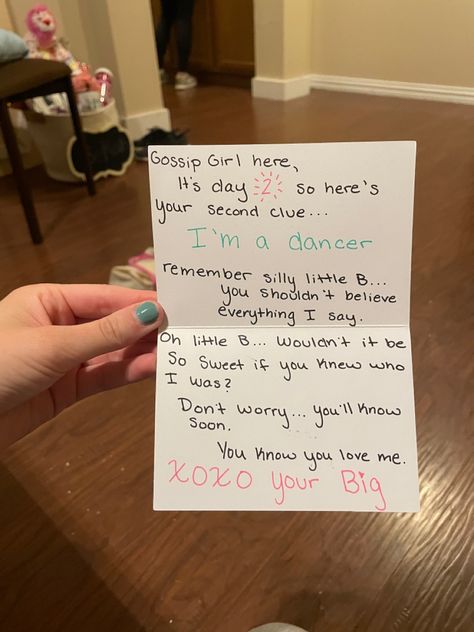 Gossip Girl here,
It's day 2 so here's
your second clue...
I'm a dancer
remember silly little B...
you shouldn't believe
everything I say.
Oh little B... Wouldn't it be
So Sweet if you knew who
I was?
Don't worry... you'll know
soon.
You know you love me.
XOXO your Big